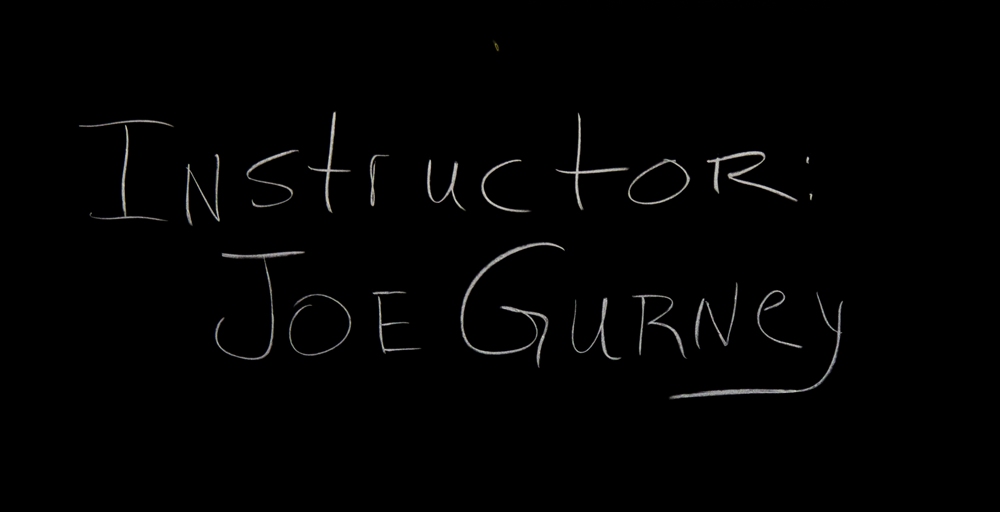 Instructor:
Joe Gurney